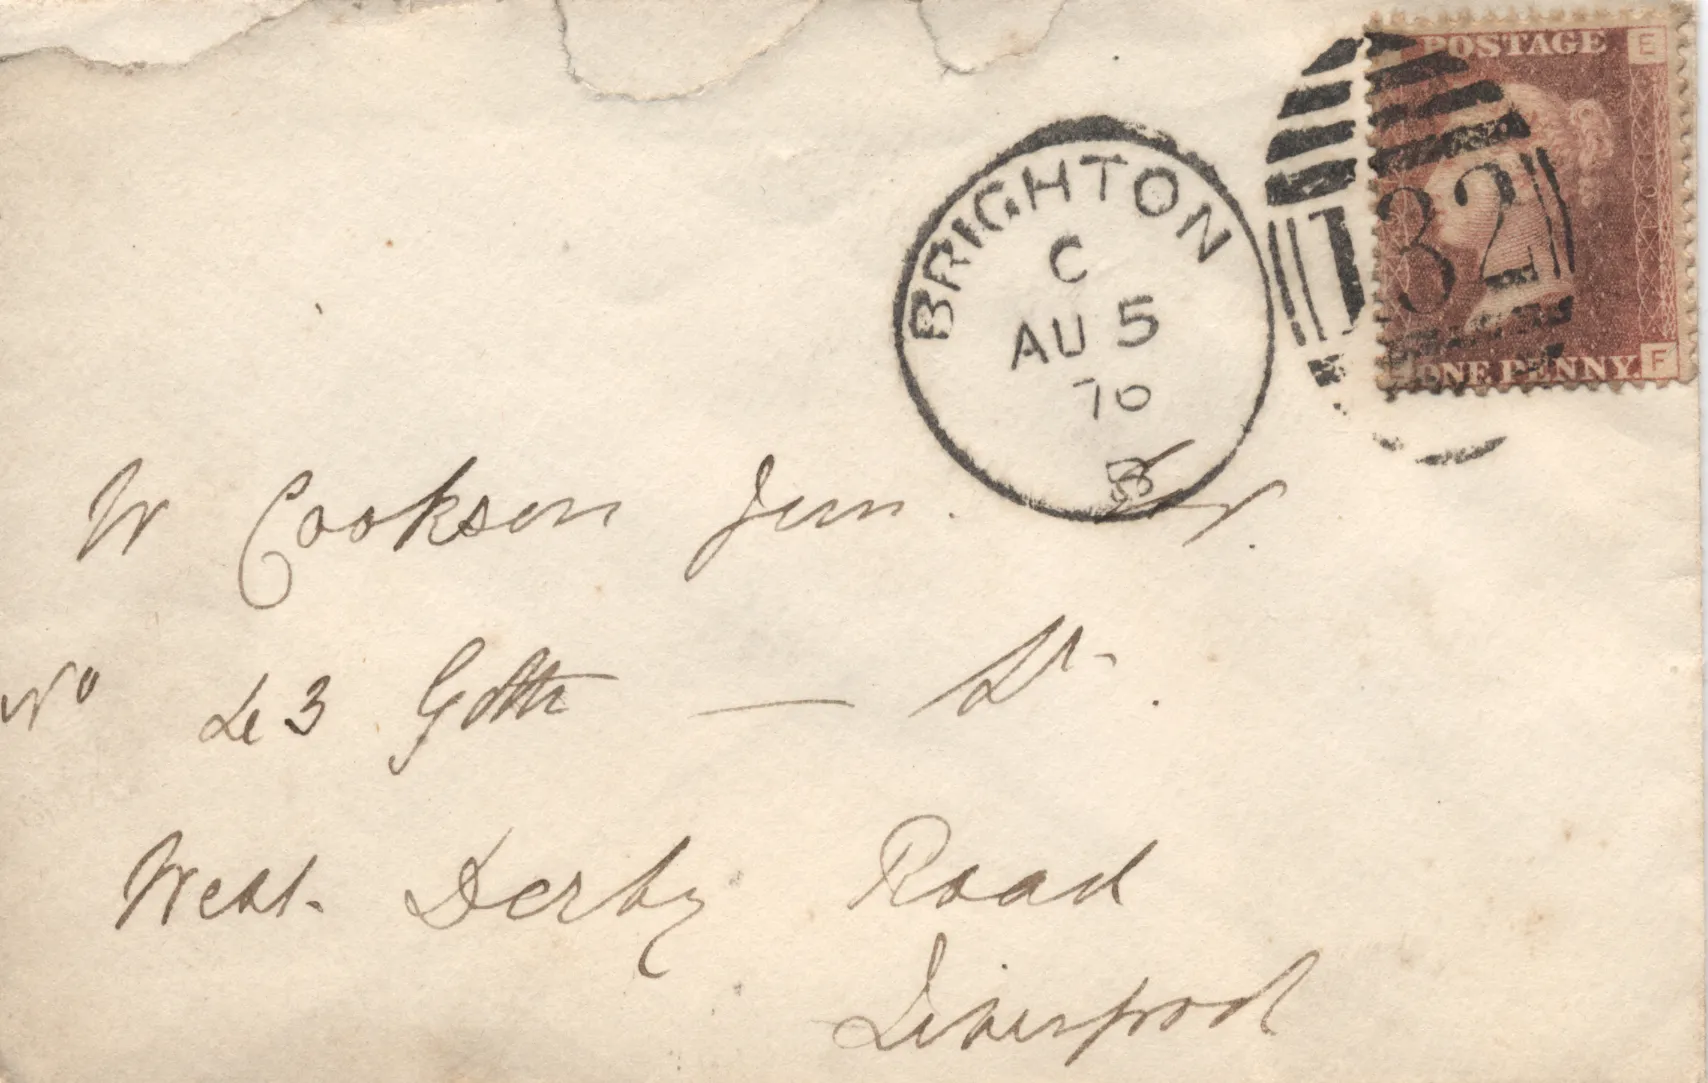 POSTAGE
E
132
ONE PENNY.
F
BRIGHTON
C
AU 5
70
W Cookson Jun.
No 43 Goth — St.
West Derby Road
Liverpool